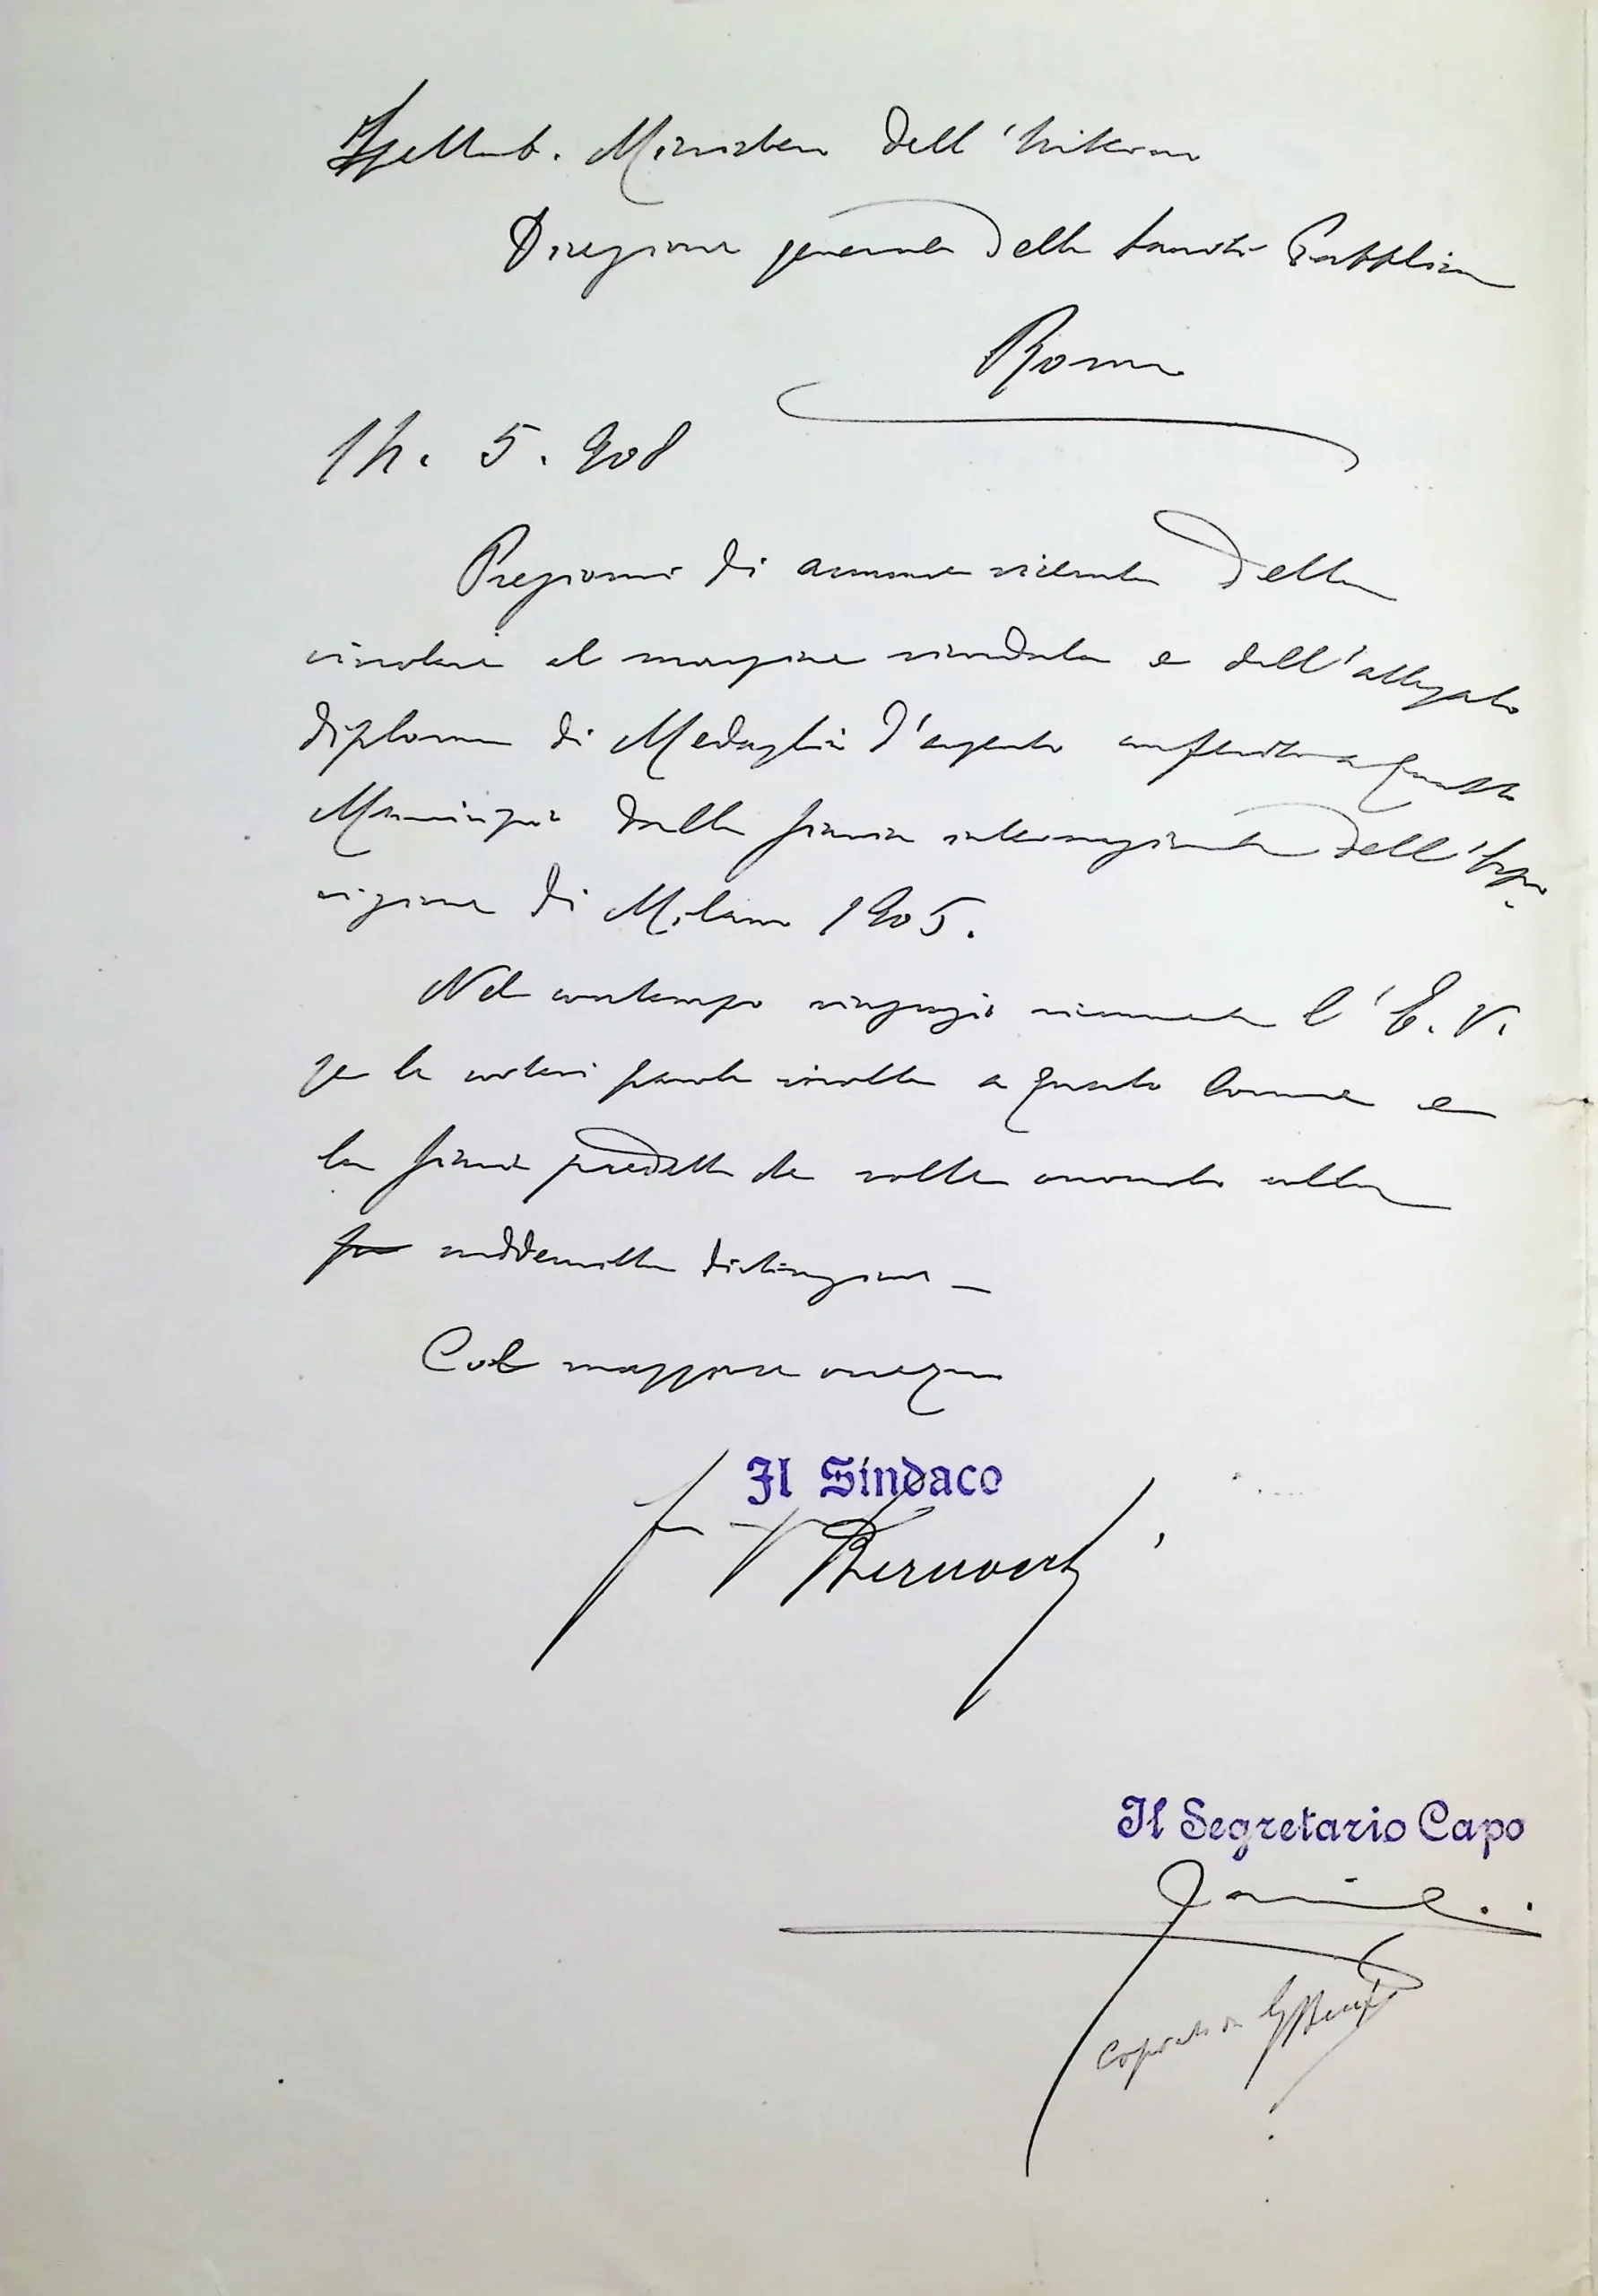 Spettab. Ministero dell'Interno
Direzione generale della Sanità Pubblica
Roma
14. 5. 908
Pregiomi di accusare ricevuta della
circolare al margine ricordata e dell'allegato
diploma di Medaglia d'argento conferito a questo
Municipio dalla Giuria internazionale dell'Espo-
sizione di Milano 1905.
Nel contempo ringrazio vivamente l'E.V.
per le cortesi parole rivolte a questo Comune e
la Giuria predetta che volle onorarlo colla
suddescritta distinzione —
Col maggiore ossequio
Il Sindaco
Il Segretario Capo
Copiato da